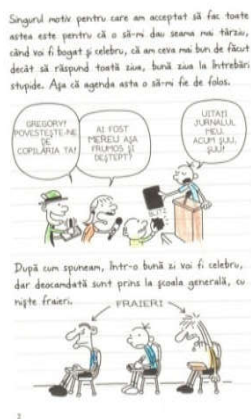 Singurul motiv pentru care am acceptat să fac toate
astea este pentru că o să-mi dau seama mai târziu,
când voi fi bogat și celebru, că am ceva mai bun de făcut
decât să răspund toată ziua, bună ziua la întrebări
stupide. Așa că agenda asta o să-mi fie de folos.
GREGORY!
POVESTEȘTE-NE
DE
COPILĂRIA TA!
AI FOST
MEREU AȘA
FRUMOS ȘI
DEȘTEPT?
UITAȚI
JURNALUL
MEU.
ACUM ȘUU,
ȘUU!
BLITZ
După cum spuneam, într-o bună zi voi fi celebru,
dar deocamdată sunt prins la școala generală, cu
niște fraieri.
FRAIERI
2